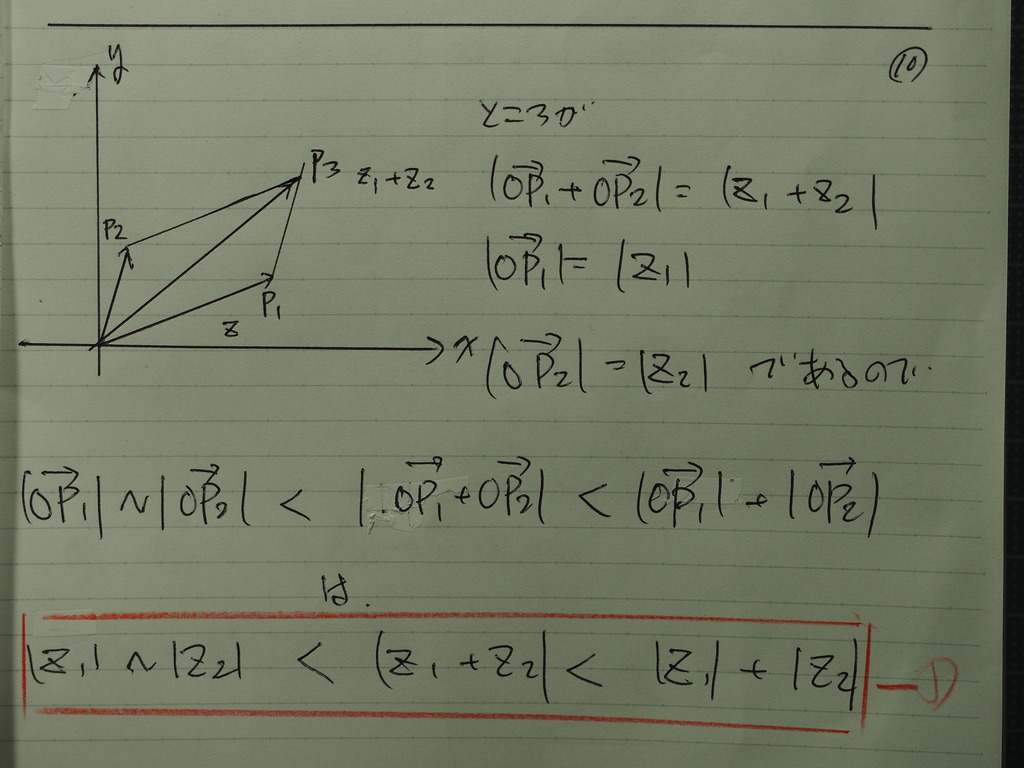 ⑩
y
P3 z₁+z₂
P2
P₁
z
x
ところが
|OP₁+OP₂| = |z₁+z₂|
|OP₁| = |z₁|
|OP₂| = |z₂| であるので
|OP₁| ~ |OP₂| < |OP₁+OP₂| < |OP₁| + |OP₂|
は.
|z₁| ~ |z₂| < |z₁+z₂| < |z₁| + |z₂| —①